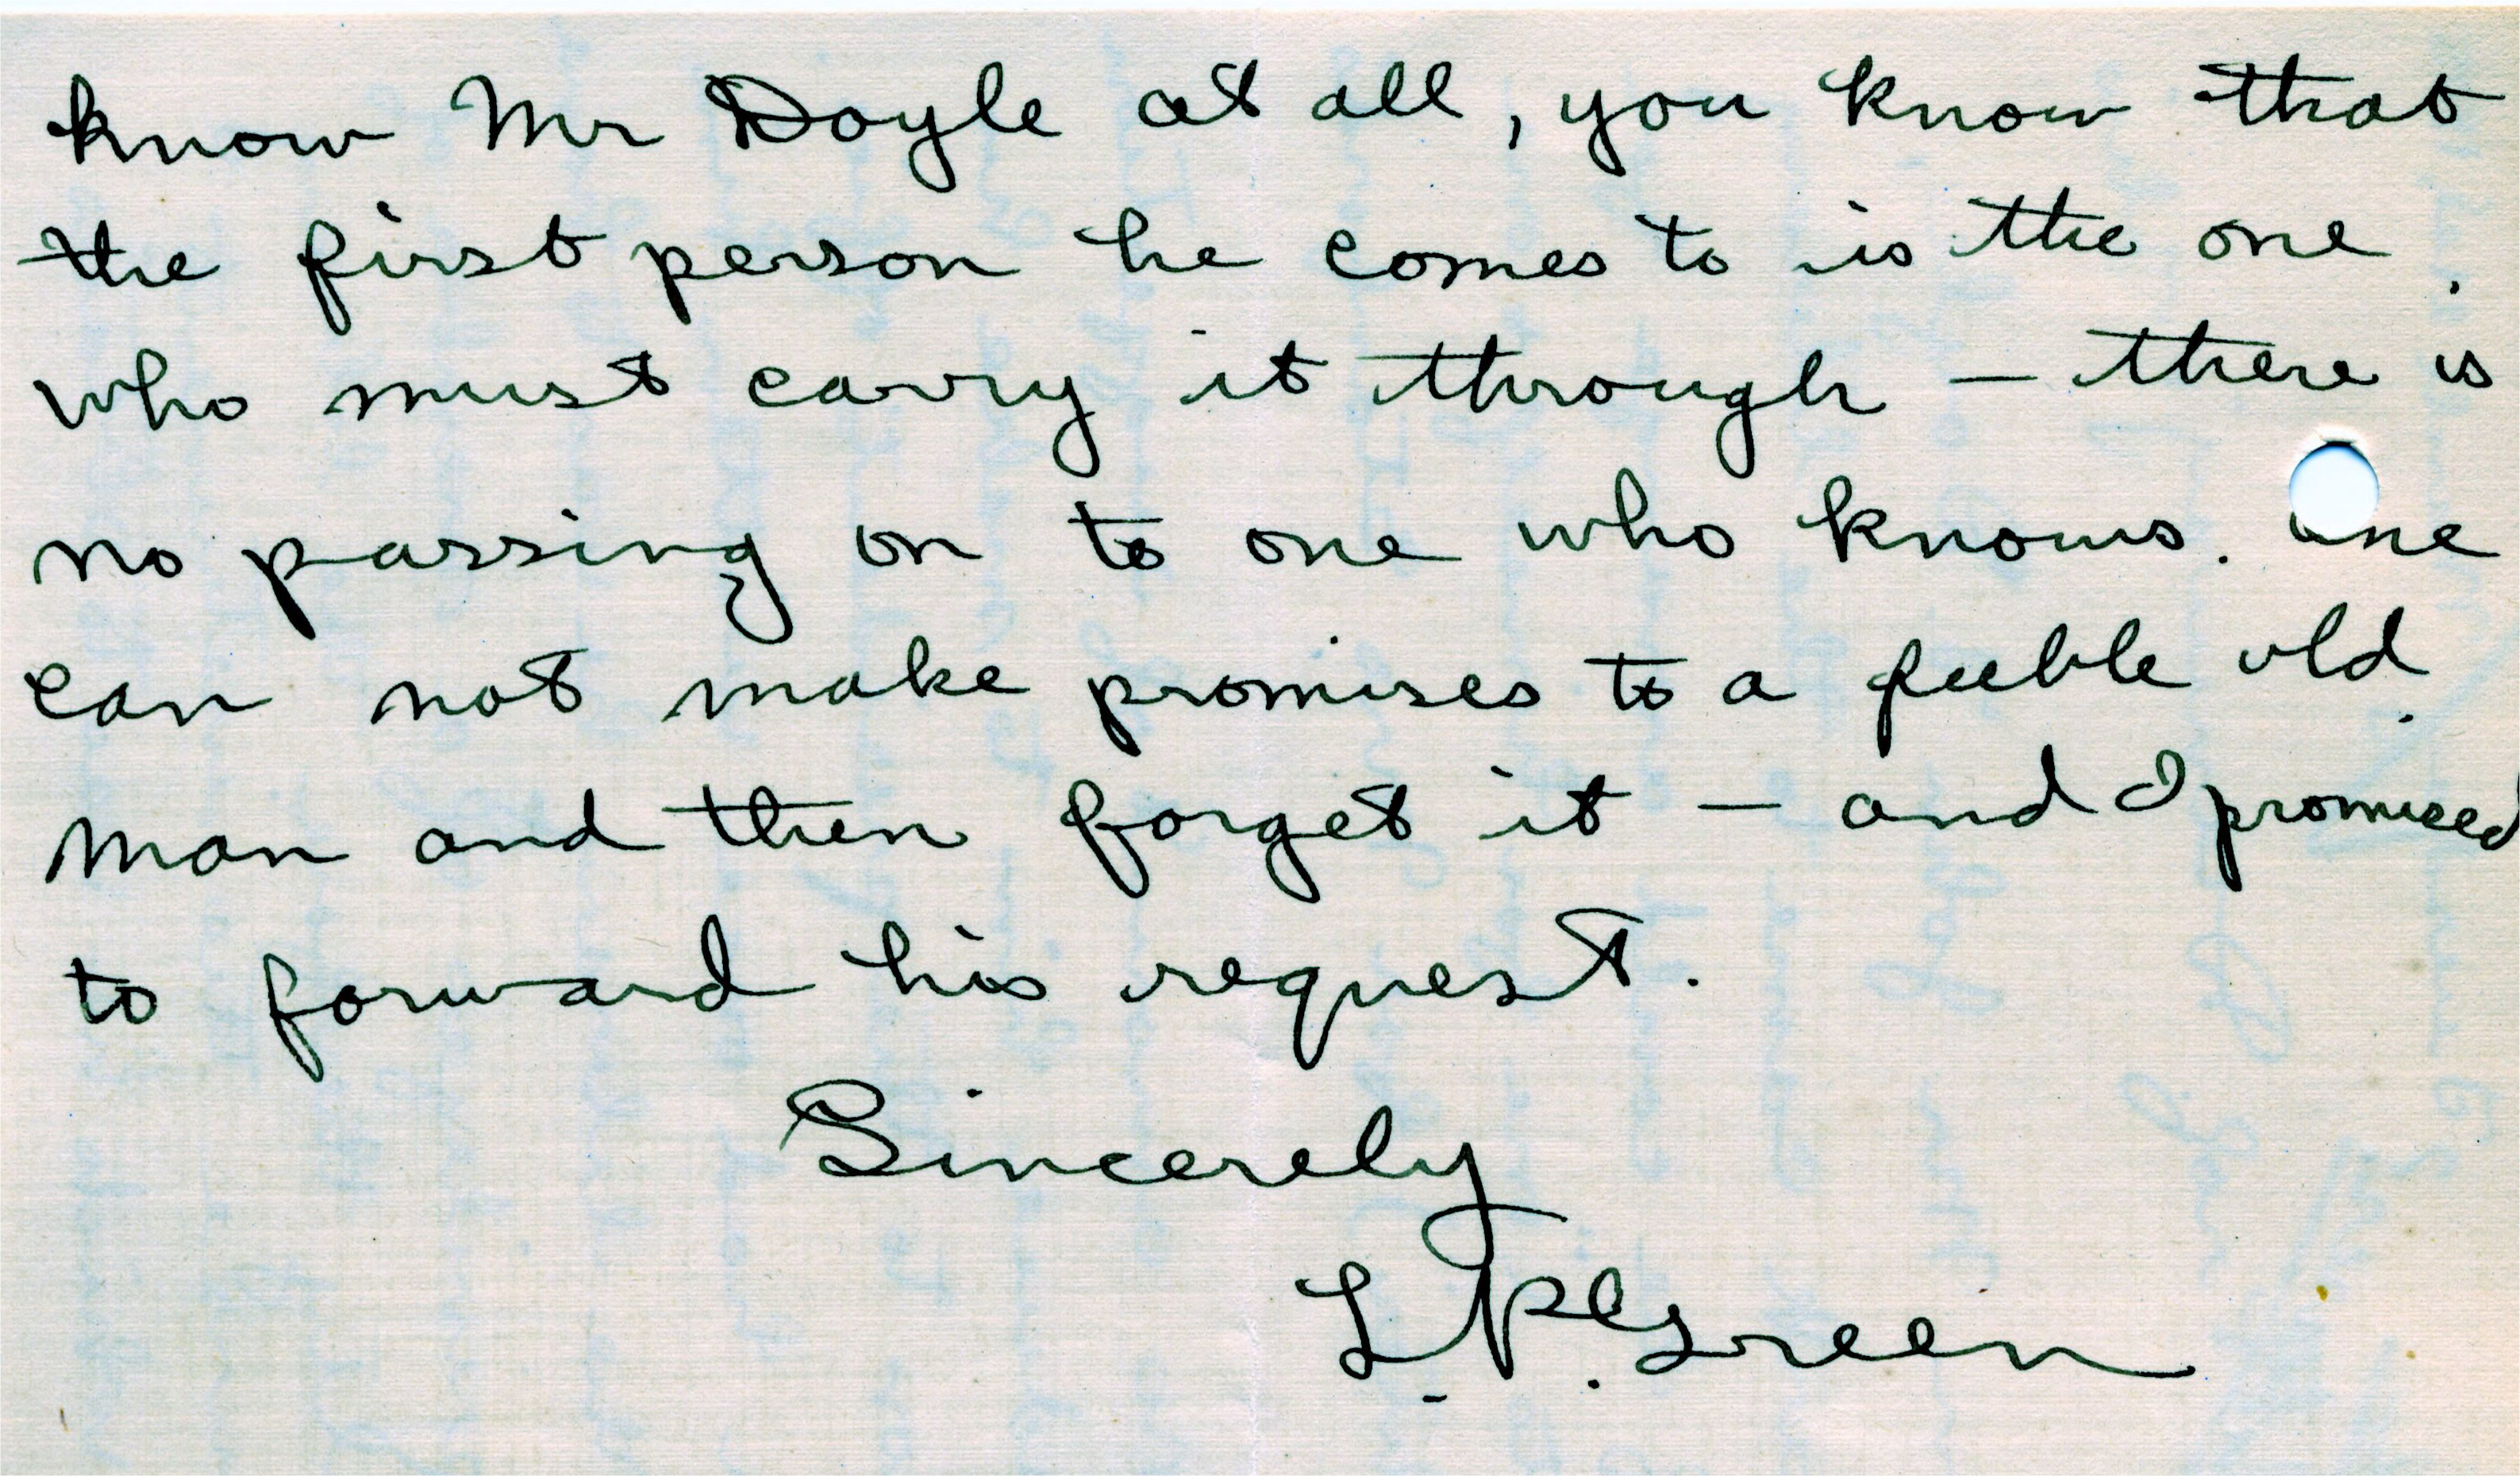 know Mr Doyle at all, you know that
the first person he comes to is the one
who must carry it through — there is
no passing on to one who knows. One
can not make promises to a feeble old
man and then forget it — and I promised
to forward his request.
Sincerely
L. P. Green